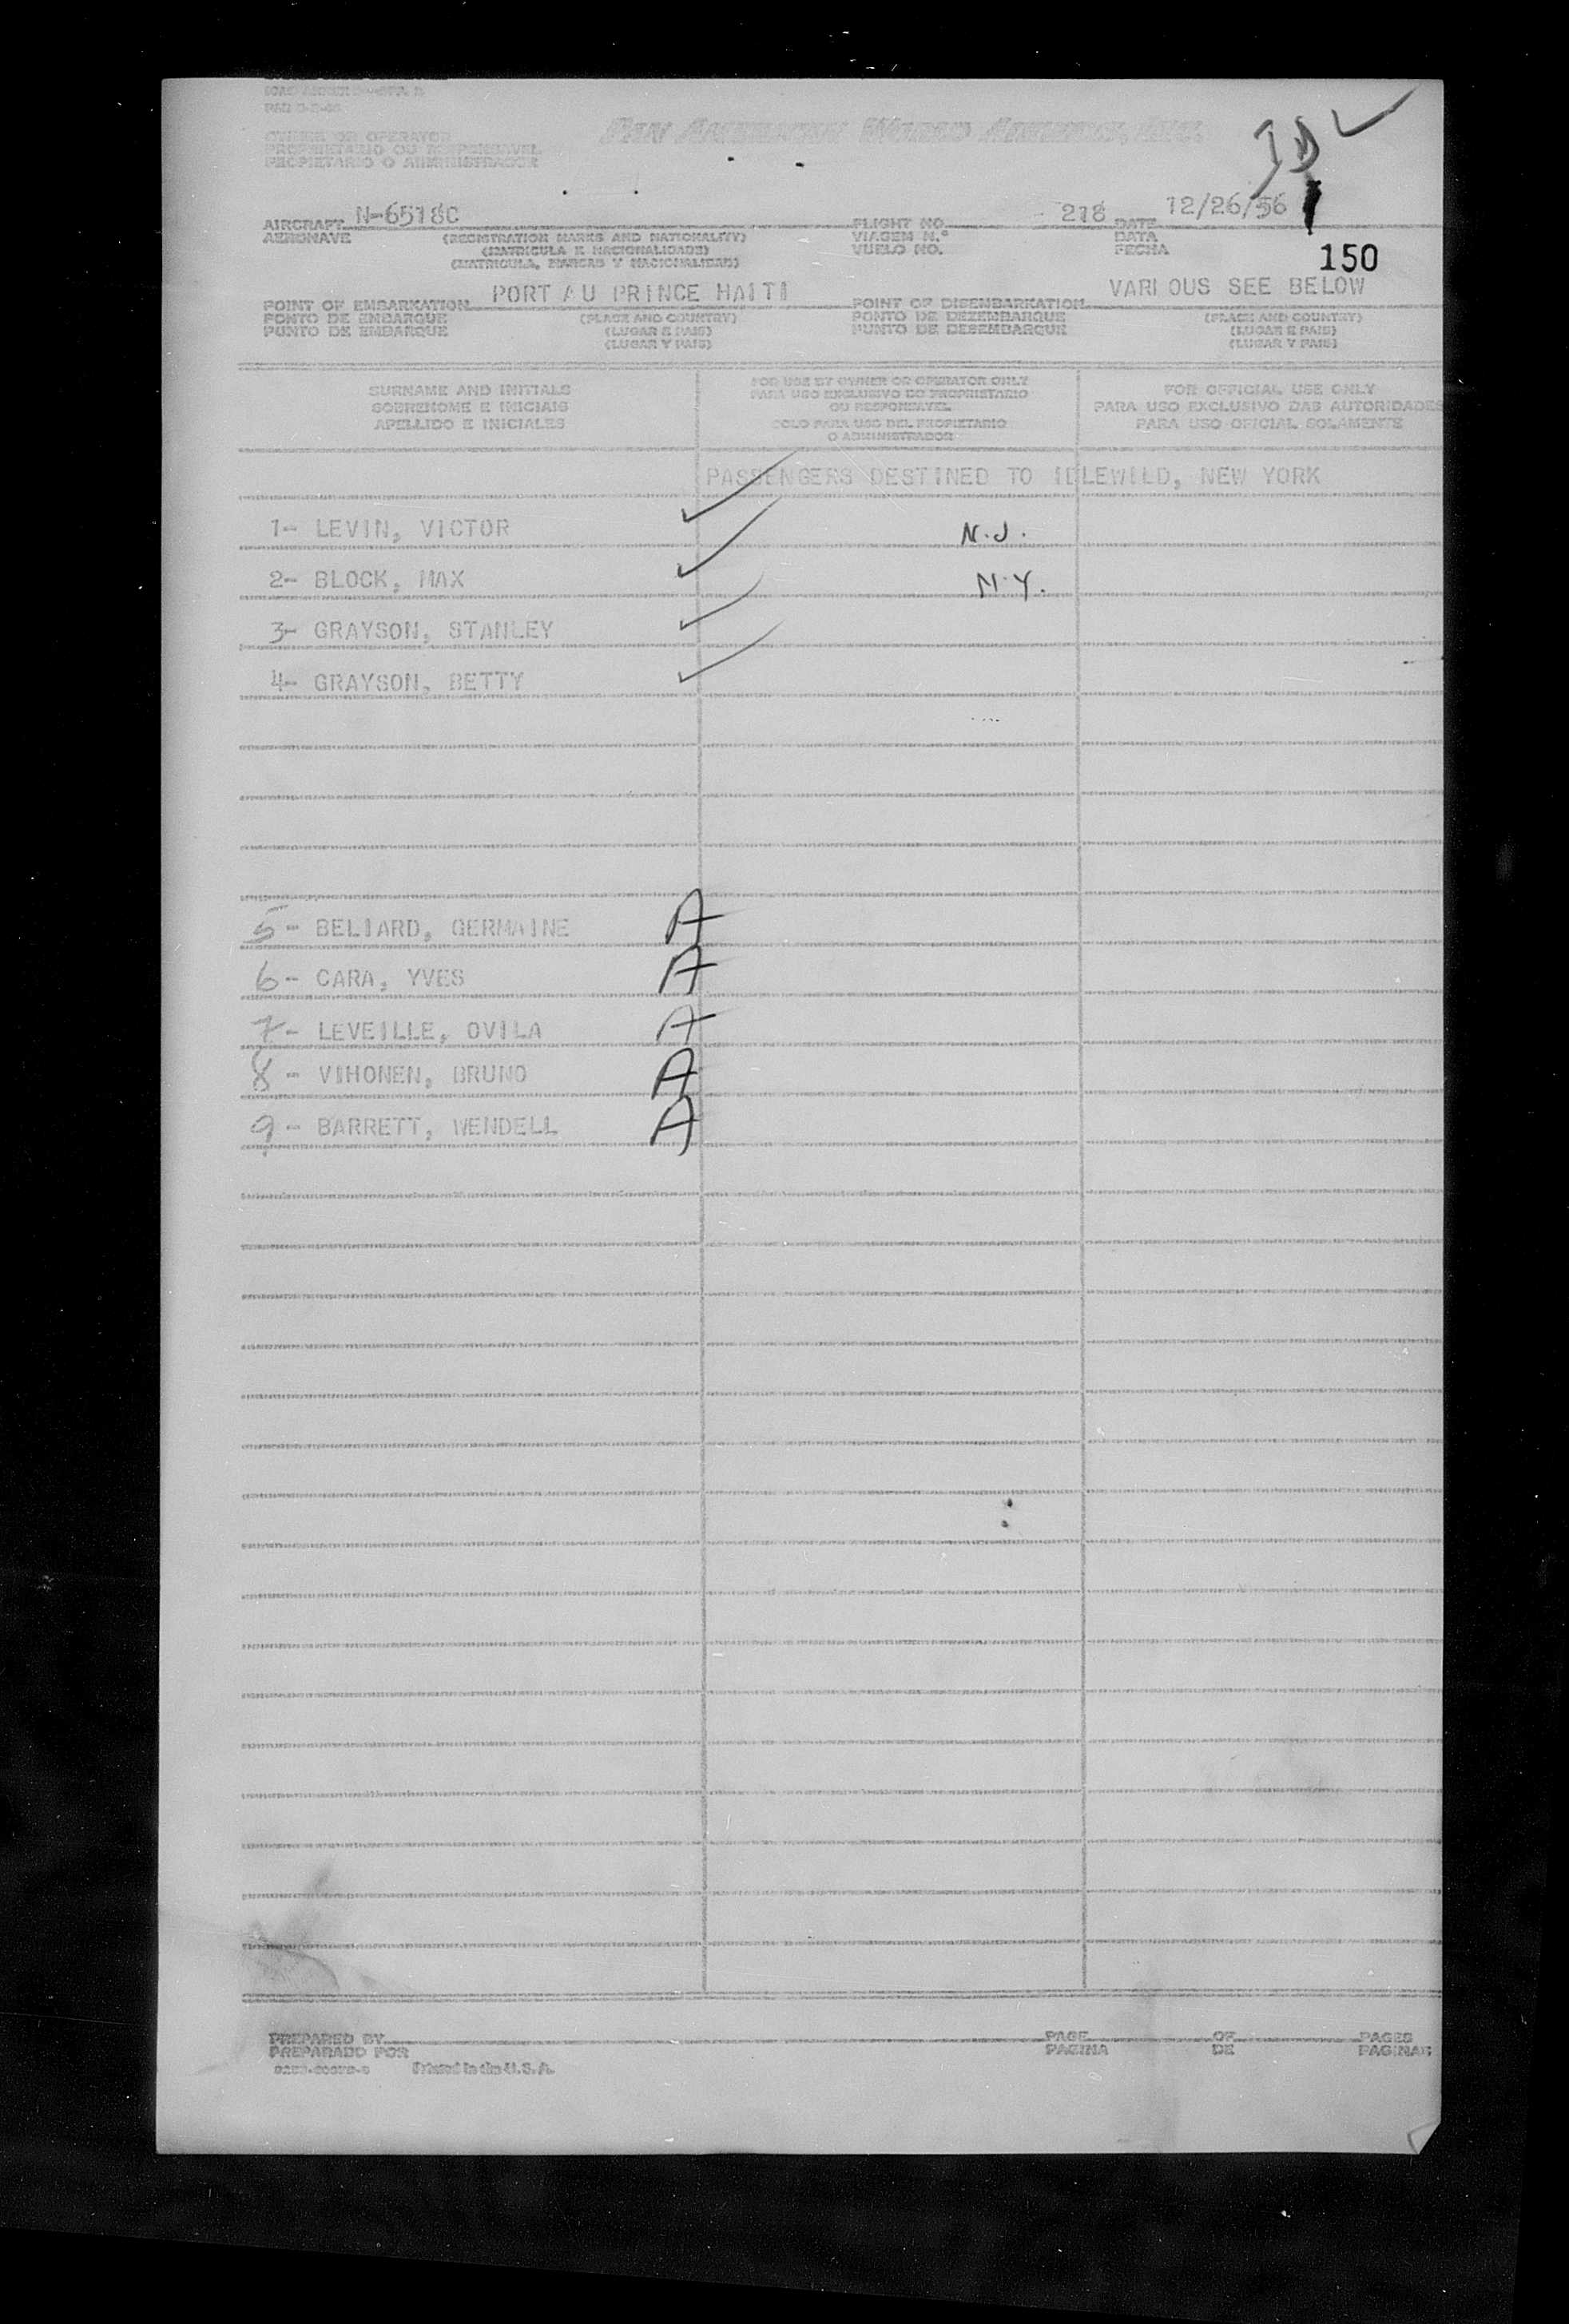 PAN AMERICAN WORLD AIRWAYS, INC.
OWNER OR OPERATOR
PROPRIETARIO OU RESPONSAVEL
PROPIETARIO O ADMINISTRADOR
AIRCRAFT N-6518C FLIGHT NO. 218 DATE 12/26/56
AERONAVE (REGISTRATION MARKS AND NATIONALITY) VIAGEM N.º DATA
(MATRICULA E NACIONALIDADE) VUELO NO. FECHA
(MATRICULA, MARCAS Y NACIONALIDAD)
150
POINT OF EMBARKATION PORT AU PRINCE HAITI POINT OF DISEMBARKATION VARIOUS SEE BELOW
PONTO DE EMBARQUE (PLACE AND COUNTRY) PONTO DE DEZEMBARQUE (PLACE AND COUNTRY)
PUNTO DE EMBARQUE (LUGAR E PAIS) PUNTO DE DESEMBARQUE (LUGAR E PAIS)
(LUGAR Y PAIS) (LUGAR Y PAIS)
SURNAME AND INITIALS
SOBRENOME E INICIAIS
APELLIDO E INICIALES
FOR USE BY OWNER OR OPERATOR ONLY
PARA USO EXCLUSIVO DO PROPRIETARIO
OU RESPONSAVEL
SOLO PARA USO DEL PROPIETARIO
O ADMINISTRADOR
FOR OFFICIAL USE ONLY
PARA USO EXCLUSIVO DAS AUTORIDADES
PARA USO OFICIAL SOLAMENTE
PASSENGERS DESTINED TO IDLEWILD, NEW YORK
1- LEVIN, VICTOR N.J.
2- BLOCK, MAX N.Y.
3- GRAYSON, STANLEY
4- GRAYSON, BETTY
5- BELIARD, GERMAINE A
6- CARA, YVES A
7- LEVEILLE, OVILA A
8- VIHONEN, BRUNO A
9- BARRETT, WENDELL A
PREPARED BY PAGE OF PAGES
PREPARADO POR PAGINA DE PAGINAS
Printed in the U.S.A.